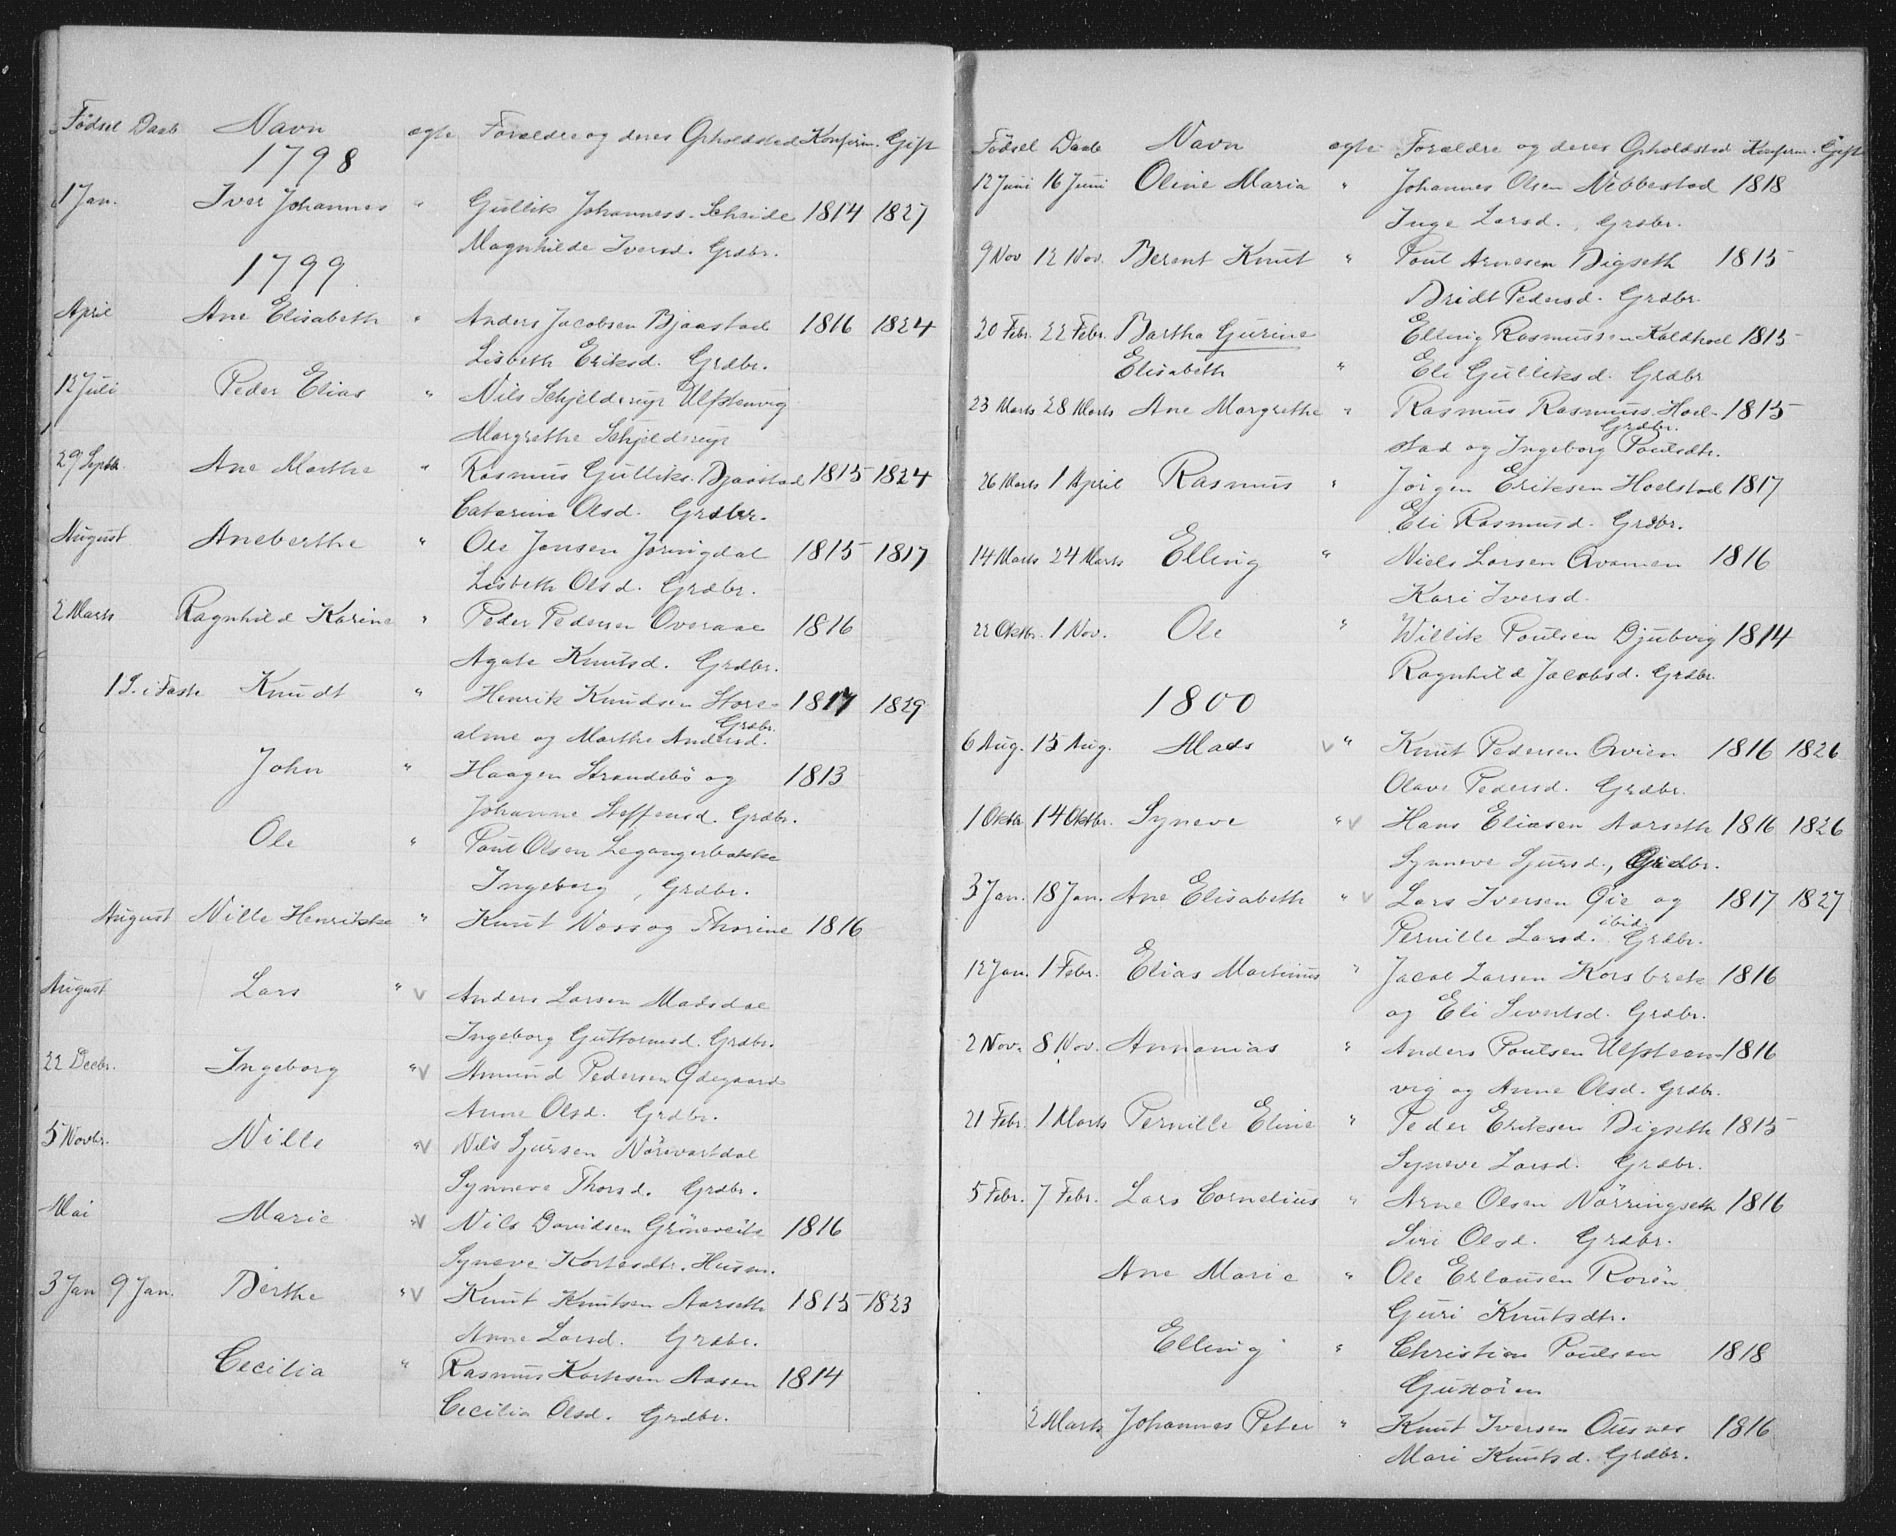 Fødsel Daab Navn ægte Forældre og deres Opholdsted Konfirm. Gift
1798
1 Jan. Iver Johannes " Gullik Johanness. Scheide 1814 1827
Magnhilde Iversd. Grdbr.
1799
April Ane Elisabeth " Anders Jacobsen Bjaastad 1816 1824
Lisbeth Eriksd. Grdbr.
12 Juli Peder Elias " Nils Schjelderup Ulfstenvig
Margrethe Schjelderup
29 Septbr. Ane Marthe " Rasmus Gulliks. Bjaastad 1815 1824
Catarina Olsd. Grdbr.
August Aneberthe " Ole Jonsen Jøringdal 1815 1817
Lisbeth Olsd. Grdbr.
2 Marts Ragnhild Karine " Peder Pedersen Overaae 1816
Agate Knutsd. Grdbr.
1 S. i Faste Knudt " Henrik Knudsen Store- 1817 1829
alme og Marthe Andersd. Grdbr.
John " Haagen Strandebø og 1813
Johanne Steffensd. Grdbr.
Ole " Poul Olsen Legangerbakke
Ingeborg , Grdbr.
August Nille Henrikke " Knut Voss og Thorine 1816
August Lars " v Anders Larsen Madsdal
Ingeborg Guttormsd. Grdbr.
22 Decbr. Ingeborg " v Amund Pedersen Ødegaard
Anne Olsd. Grdbr.
5 Novbr. Nille " v Nils Sjursen Nørevartdal
Synneve Thorsd. Grdbr.
Mai Marie " v Nils Davidsen Grøneveite 1816
Syneve Kortesdtr. Husm.
3 Jan 9 Jan. Berthe " v Knut Knutsen Aarseth 1815 1823
Anne Larsd. Grdbr.
Cecilia " Rasmus Kortesen Aasen 1814
Cecilia Olsd. Grdbr.
Fødsel Daab Navn ægte Forældre og deres Opholdsted Konfirm. Gift
12 Juni 16 Juni Oline Maria " Johannes Olsen Nebbestad 1818
Inge Larsd., Grdbr.
9 Nov 12 Nov. Berent Knut " Poul Arnesen Digseth 1815
Bridt Pedersd. Grdbr.
20 Febr. 22 Febr. Bartha Gurine Elling Rasmussen Kaldhol 1815
Elisabeth " Eli Gulliksd. Grdbr
23 Marts 28 Marts Ane Margrethe " Rasmus Rasmuss. Had- 1815
stad og Ingeborg Poulsdtr. Grdbr.
26 Marts 1 April Rasmus " Jørgen Eriksen Hadstad 1817
Eli Rasmusd. Grdbr.
14 Marts 24 Marts Elling " Niels Larsen Qvamen 1816
Kari Iversd.
22 Oktbr. 1 Nov. Ole " Willik Poulsen Djubvig 1814
Ragnhild Jacobsd. Grdbr.
1800
6 Aug. 15 Aug. Mads v " Knut Pedersen Qvien 1816 1826
Olave Pedersd. Grdbr.
1 Oktbr. 14 Oktbr. Syneve " v Hans Eliasen Aarseth 1816 1826
Synneve Sjursd., Grdbr.
3 Jan. 18 Jan. Ane Elisabeth " v Lars Iversen Øie og 1817 1827
Pernille Larsd. ibid. Grdbr.
12 Jan. 1 Febr. Elias Martinus " Jacob Larsen Korsbrek 1816
og Eli Sivertsd. Grdbr.
2 Nov. 8 Nov. Annanias " Anders Poulsen Ulfsten- 1816
vig og Anne Olsd. Grdbr.
21 Febr. 1 Marts Pernille Eline " Peder Eriksen Digseth 1815
Syneve Larsd. Grdbr.
5 Febr. 7 Febr. Lars Cornelius " Arne Olsen Nörringseth 1816
Siri Olsd. Grdbr.
Ane Marie " Ole Erlansen Rorøn
Guri Knutsdtr.
Elling " Christian Poulsen 1818
Gudøren
2 Marts Johannes Peter " Knut Iversen Ousnes 1816
Mari Knutsd. Grdbr.